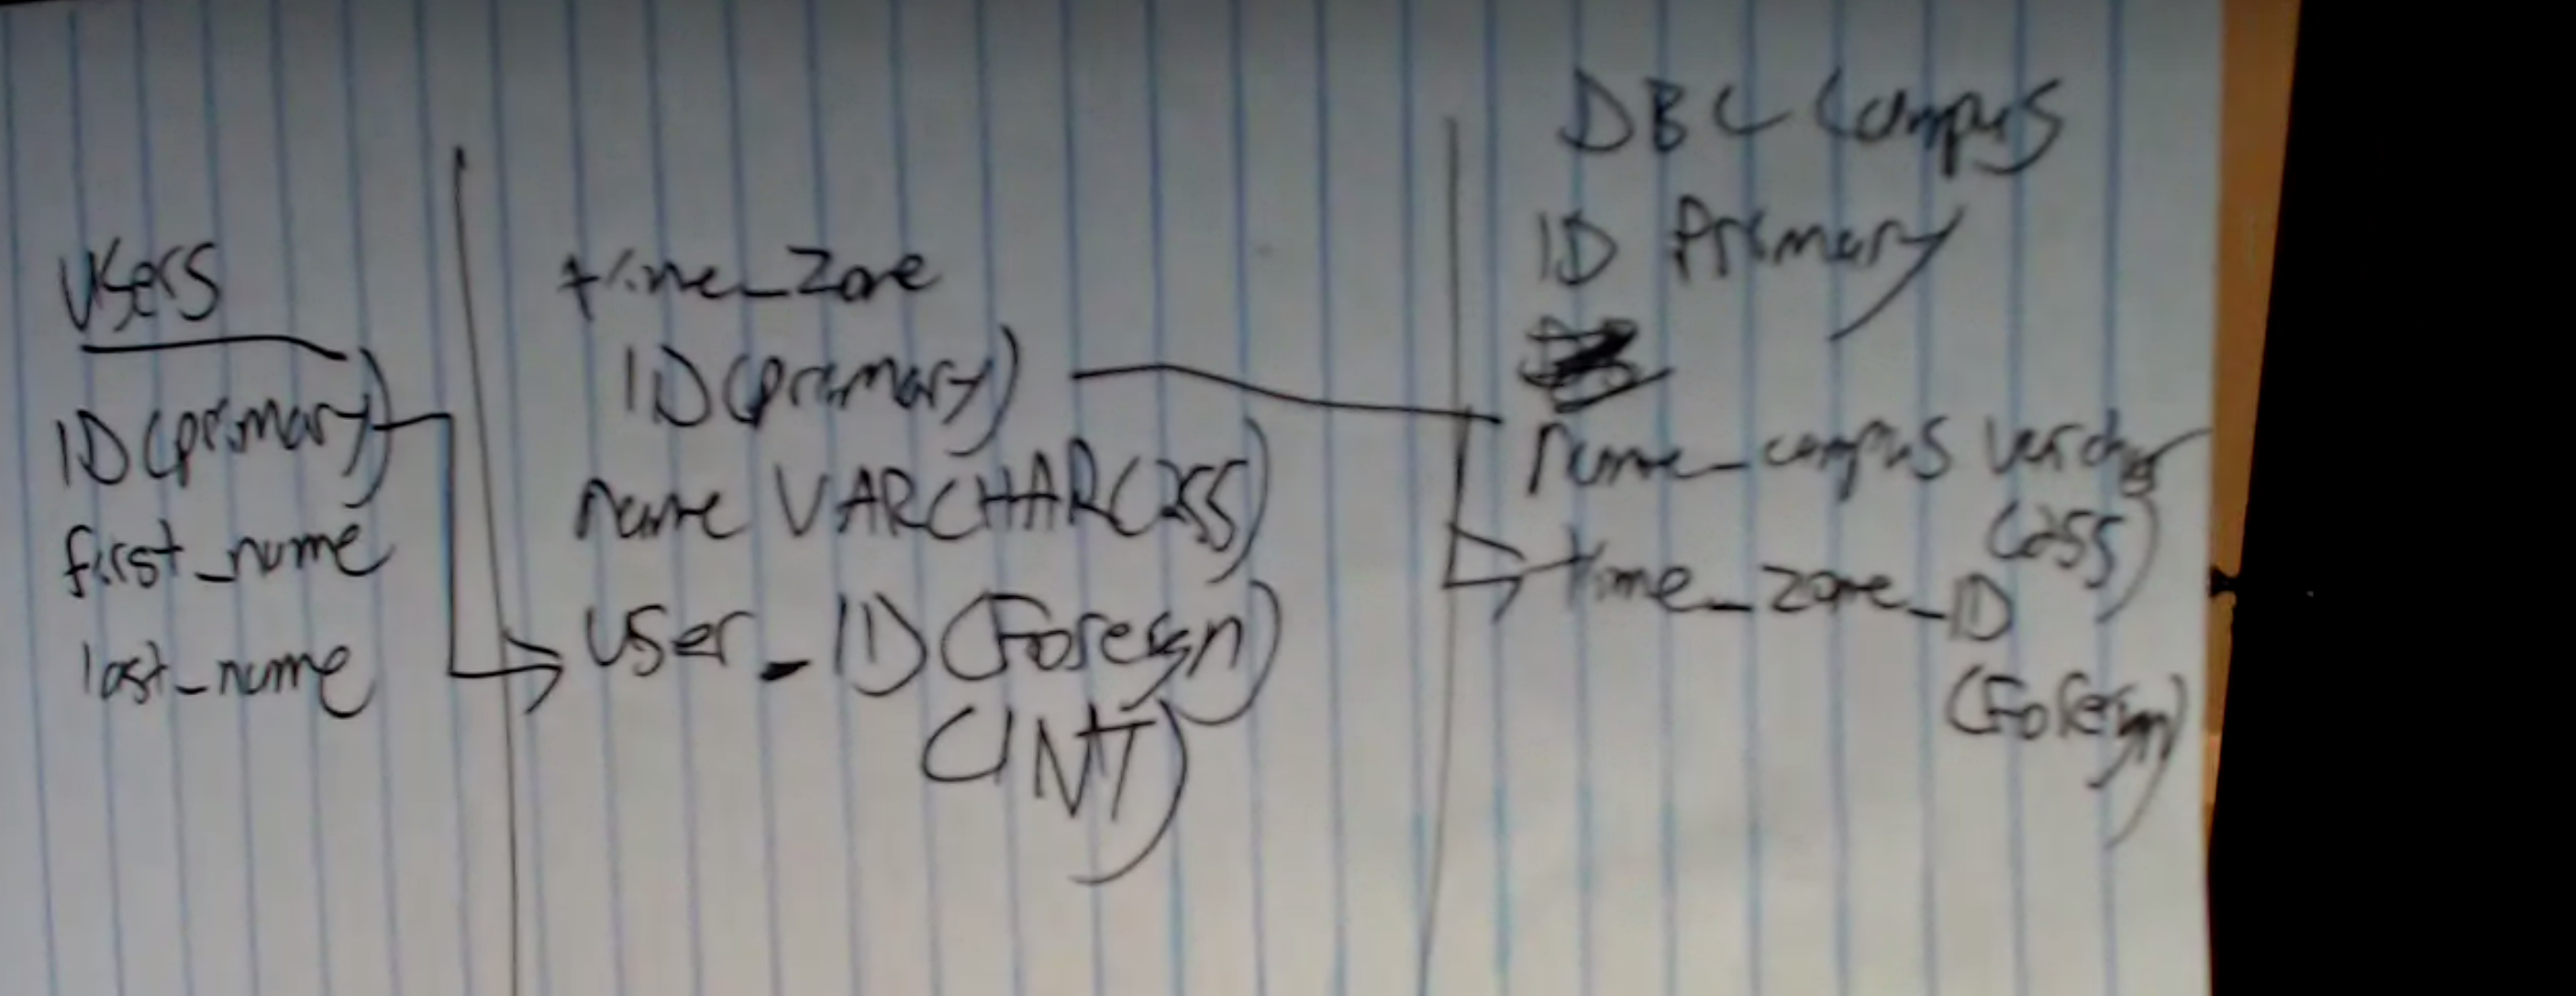 Users
ID (primary)
first_name
last_name
time_zone
ID (primary)
name VARCHAR(255)
User_ID (Foreign)
(INT)
DBC Campus
ID Primary
name_campus varchar
(255)
time_zone_ID
(Foreign)